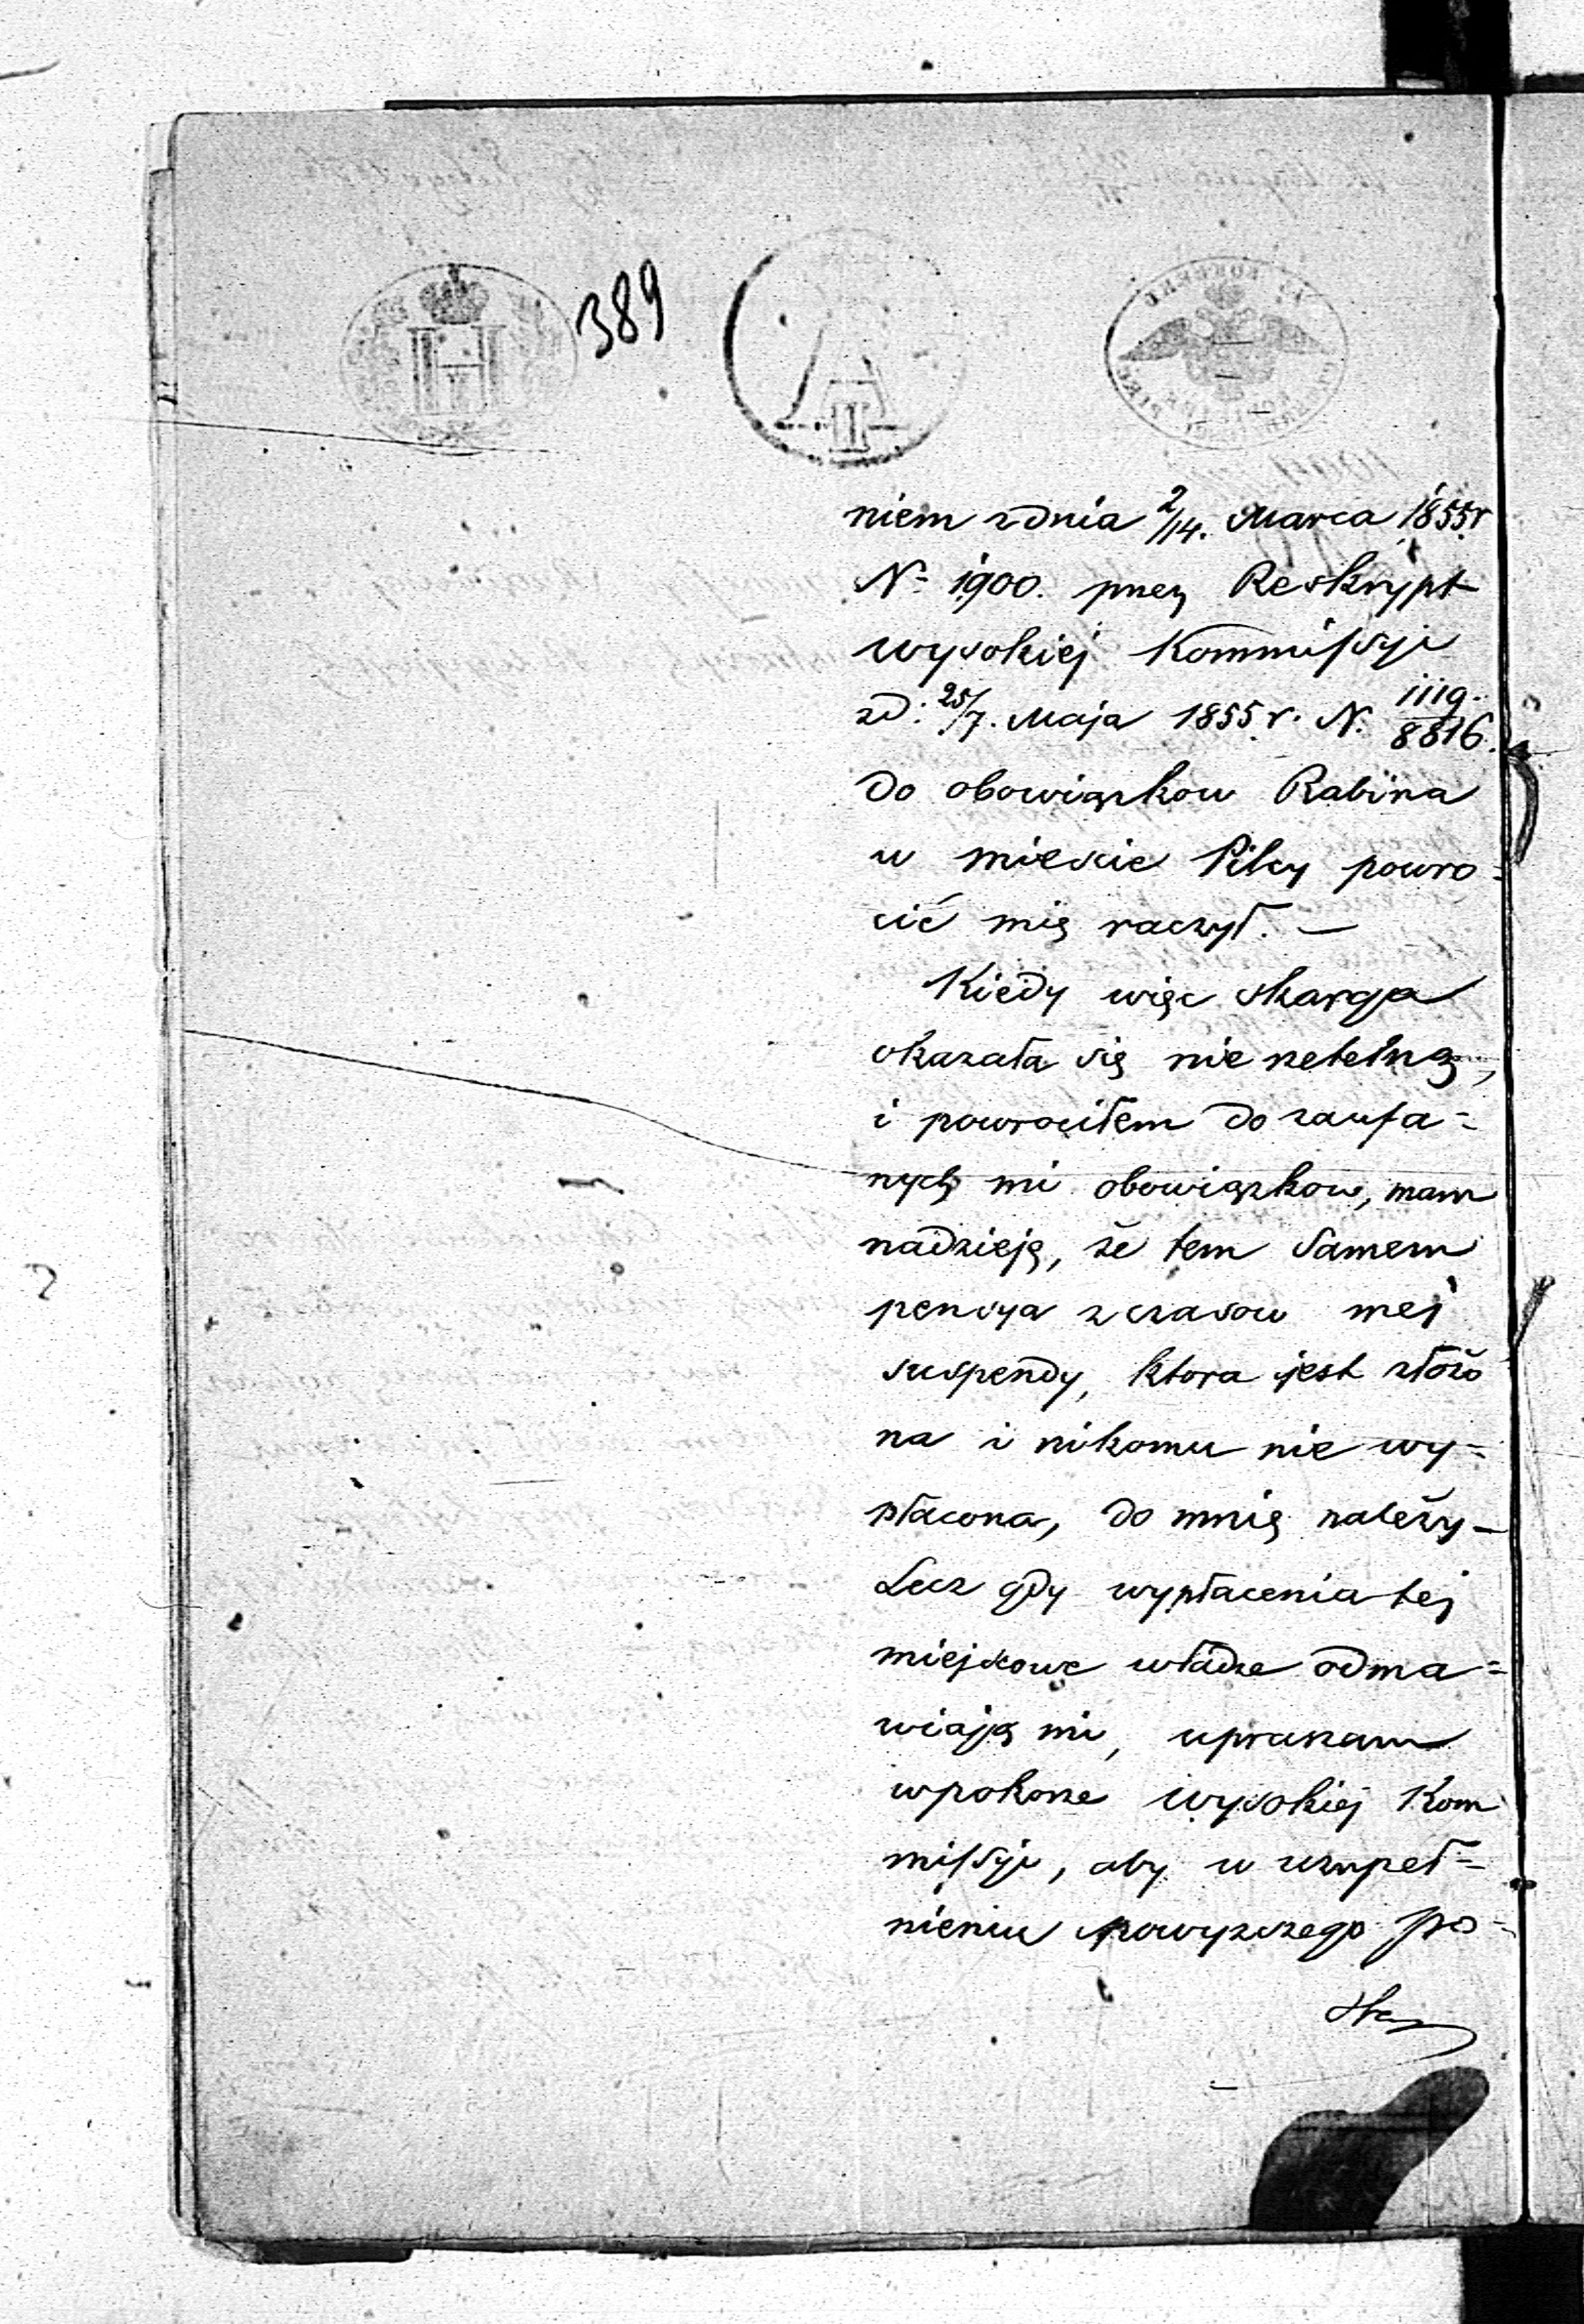 389
niem zdnia 2/14. Marca 1855r
No 1900. przez Reskrypt
wysokiej Kommissyi
zd: 25/7. Maja 1855 r. N. 1119/8816.
do obowiązkow Rabina
w miescie Pilcy powro=
cić mię raczył. —
Kiedy więc skarga
okazała się nie rzetelną,
i powrociłem do zaufa=
nych mi obowiązkow, mam
nadzieję, że tem samem
pensya z czasow mej
suspendy, ktora jest złożo
na i nikomu nie wy=
płacona, do mnię należy —
Lecz gdy wypłacenia tej
miejscowe władze odma=
wiają mi, upraszam
wpokorze wysokiej Kom
missyi, aby w uzupeł=
nieniu powyzszego po=